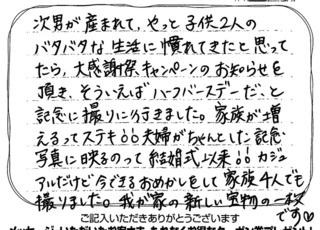 次男が産まれて、やっと子供2人の
バタバタな生活に慣れてきたと思って
たら、大感謝祭キャンペーンのお知らせを
頂き、そういえばハーフバースデーだ、と
記念に撮りに行きました。家族が増
えるってステキ!! 夫婦がちゃんとした記念
写真に映るのって結婚式以来!! カジュ
アルだけど今できるおめかしをして家族4人でも
撮りました。我が家の新しい宝物の一枚
です♡
ご記入いただきありがとうございます